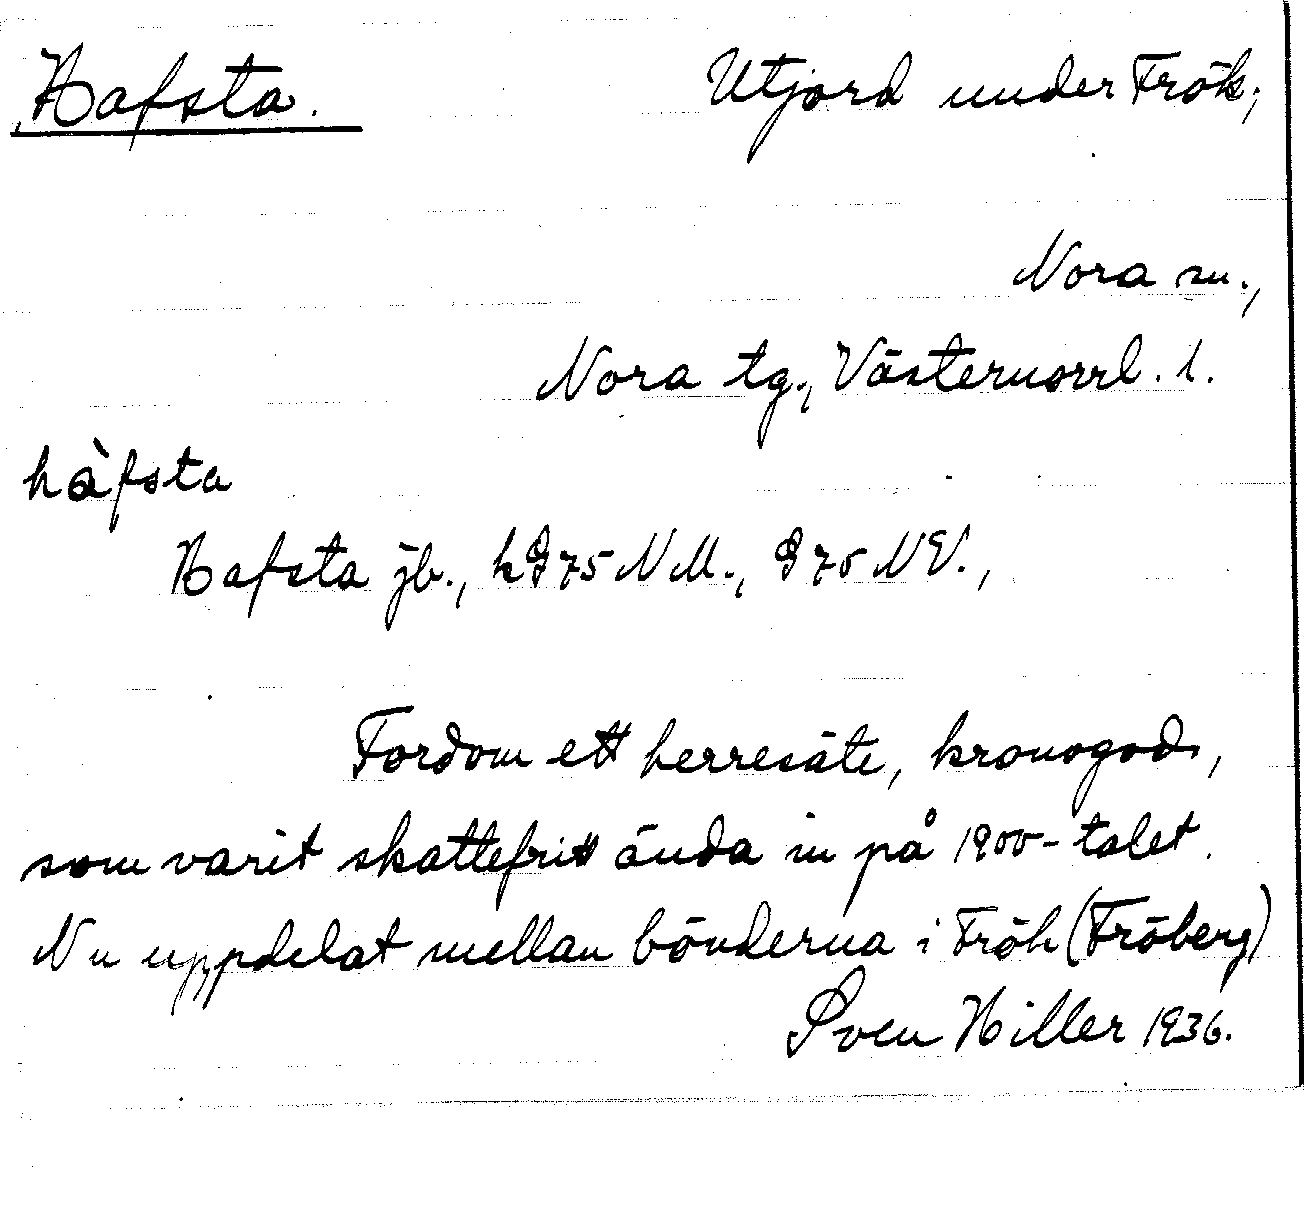 Hafsta.
Utjord under Frök;
Nora sn.,
Nora tg., Västernorrl. l.
hàfsta
Hafsta jb., kG 75 NM., G 75 NV.,
Fordom ett herresäte, kronogods,
som varit skattefritt ända in på 1900-talet.
Nu uppdelat mellan bönderna i Frök (Fröberg)
Sven Hiller 1936.